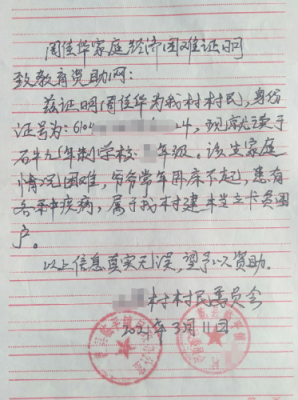 周佳华家庭经济困难证明
致教育资助网:
兹证明周佳华为我村村民,身份
证号为:610 4,现就读于
石牛九年制学校 年级。该生家庭
情况困难,爷爷常年卧床不起,患有
各种疾病,属于我村建档立卡贫困
户。
以上信息真实无误,望予以资助。
村村民委员会
202 年3月11日